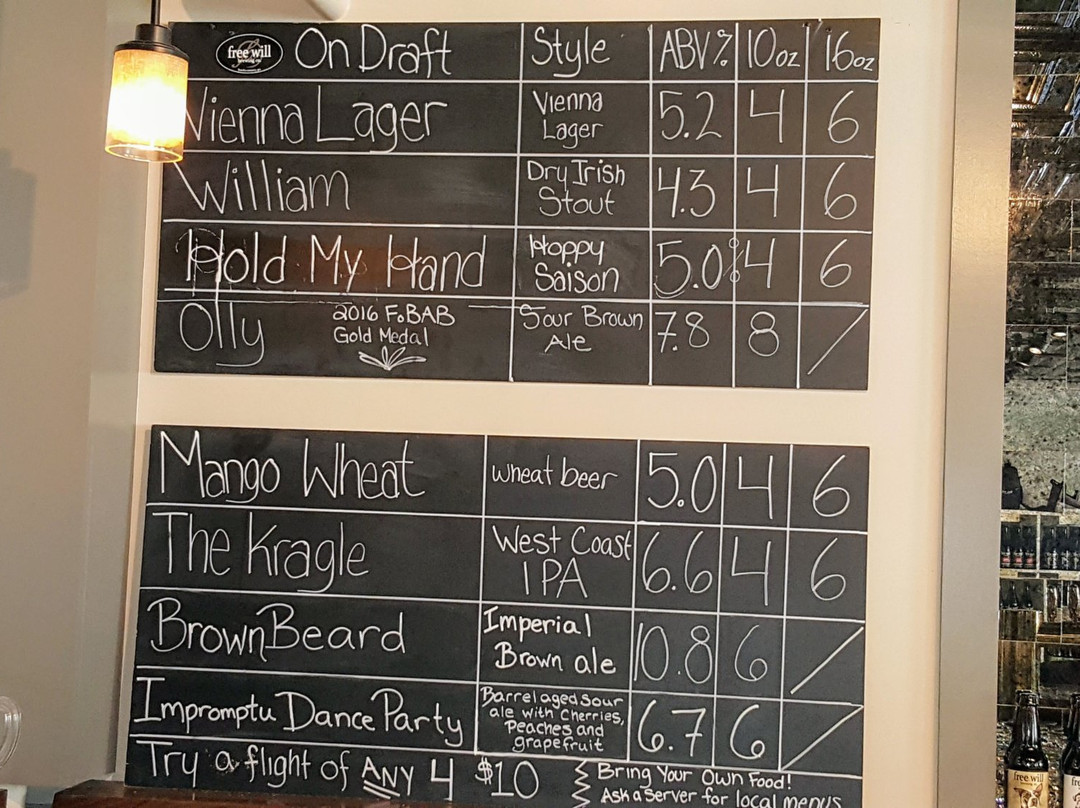 free will On Draft Style ABV% 10oz 16oz
Vienna Lager Vienna Lager 5.2 4 6
William Dry Irish Stout 4.3 4 6
Hold My Hand Hoppy Saison 5.0% 4 6
Olly 2016 FoBAB Gold Medal Sour Brown Ale 7.8 8 /
Mango Wheat wheat beer 5.0 4 6
The Kragle West Coast IPA 6.6 4 6
BrownBeard Imperial Brown ale 10.8 6 /
Impromptu Dance Party Barrel aged sour ale with Cherries, Peaches and grapefruit 6.7 6 /
Try a flight of ANY 4 $10 Bring Your Own Food!
Ask a Server for local menus
free will